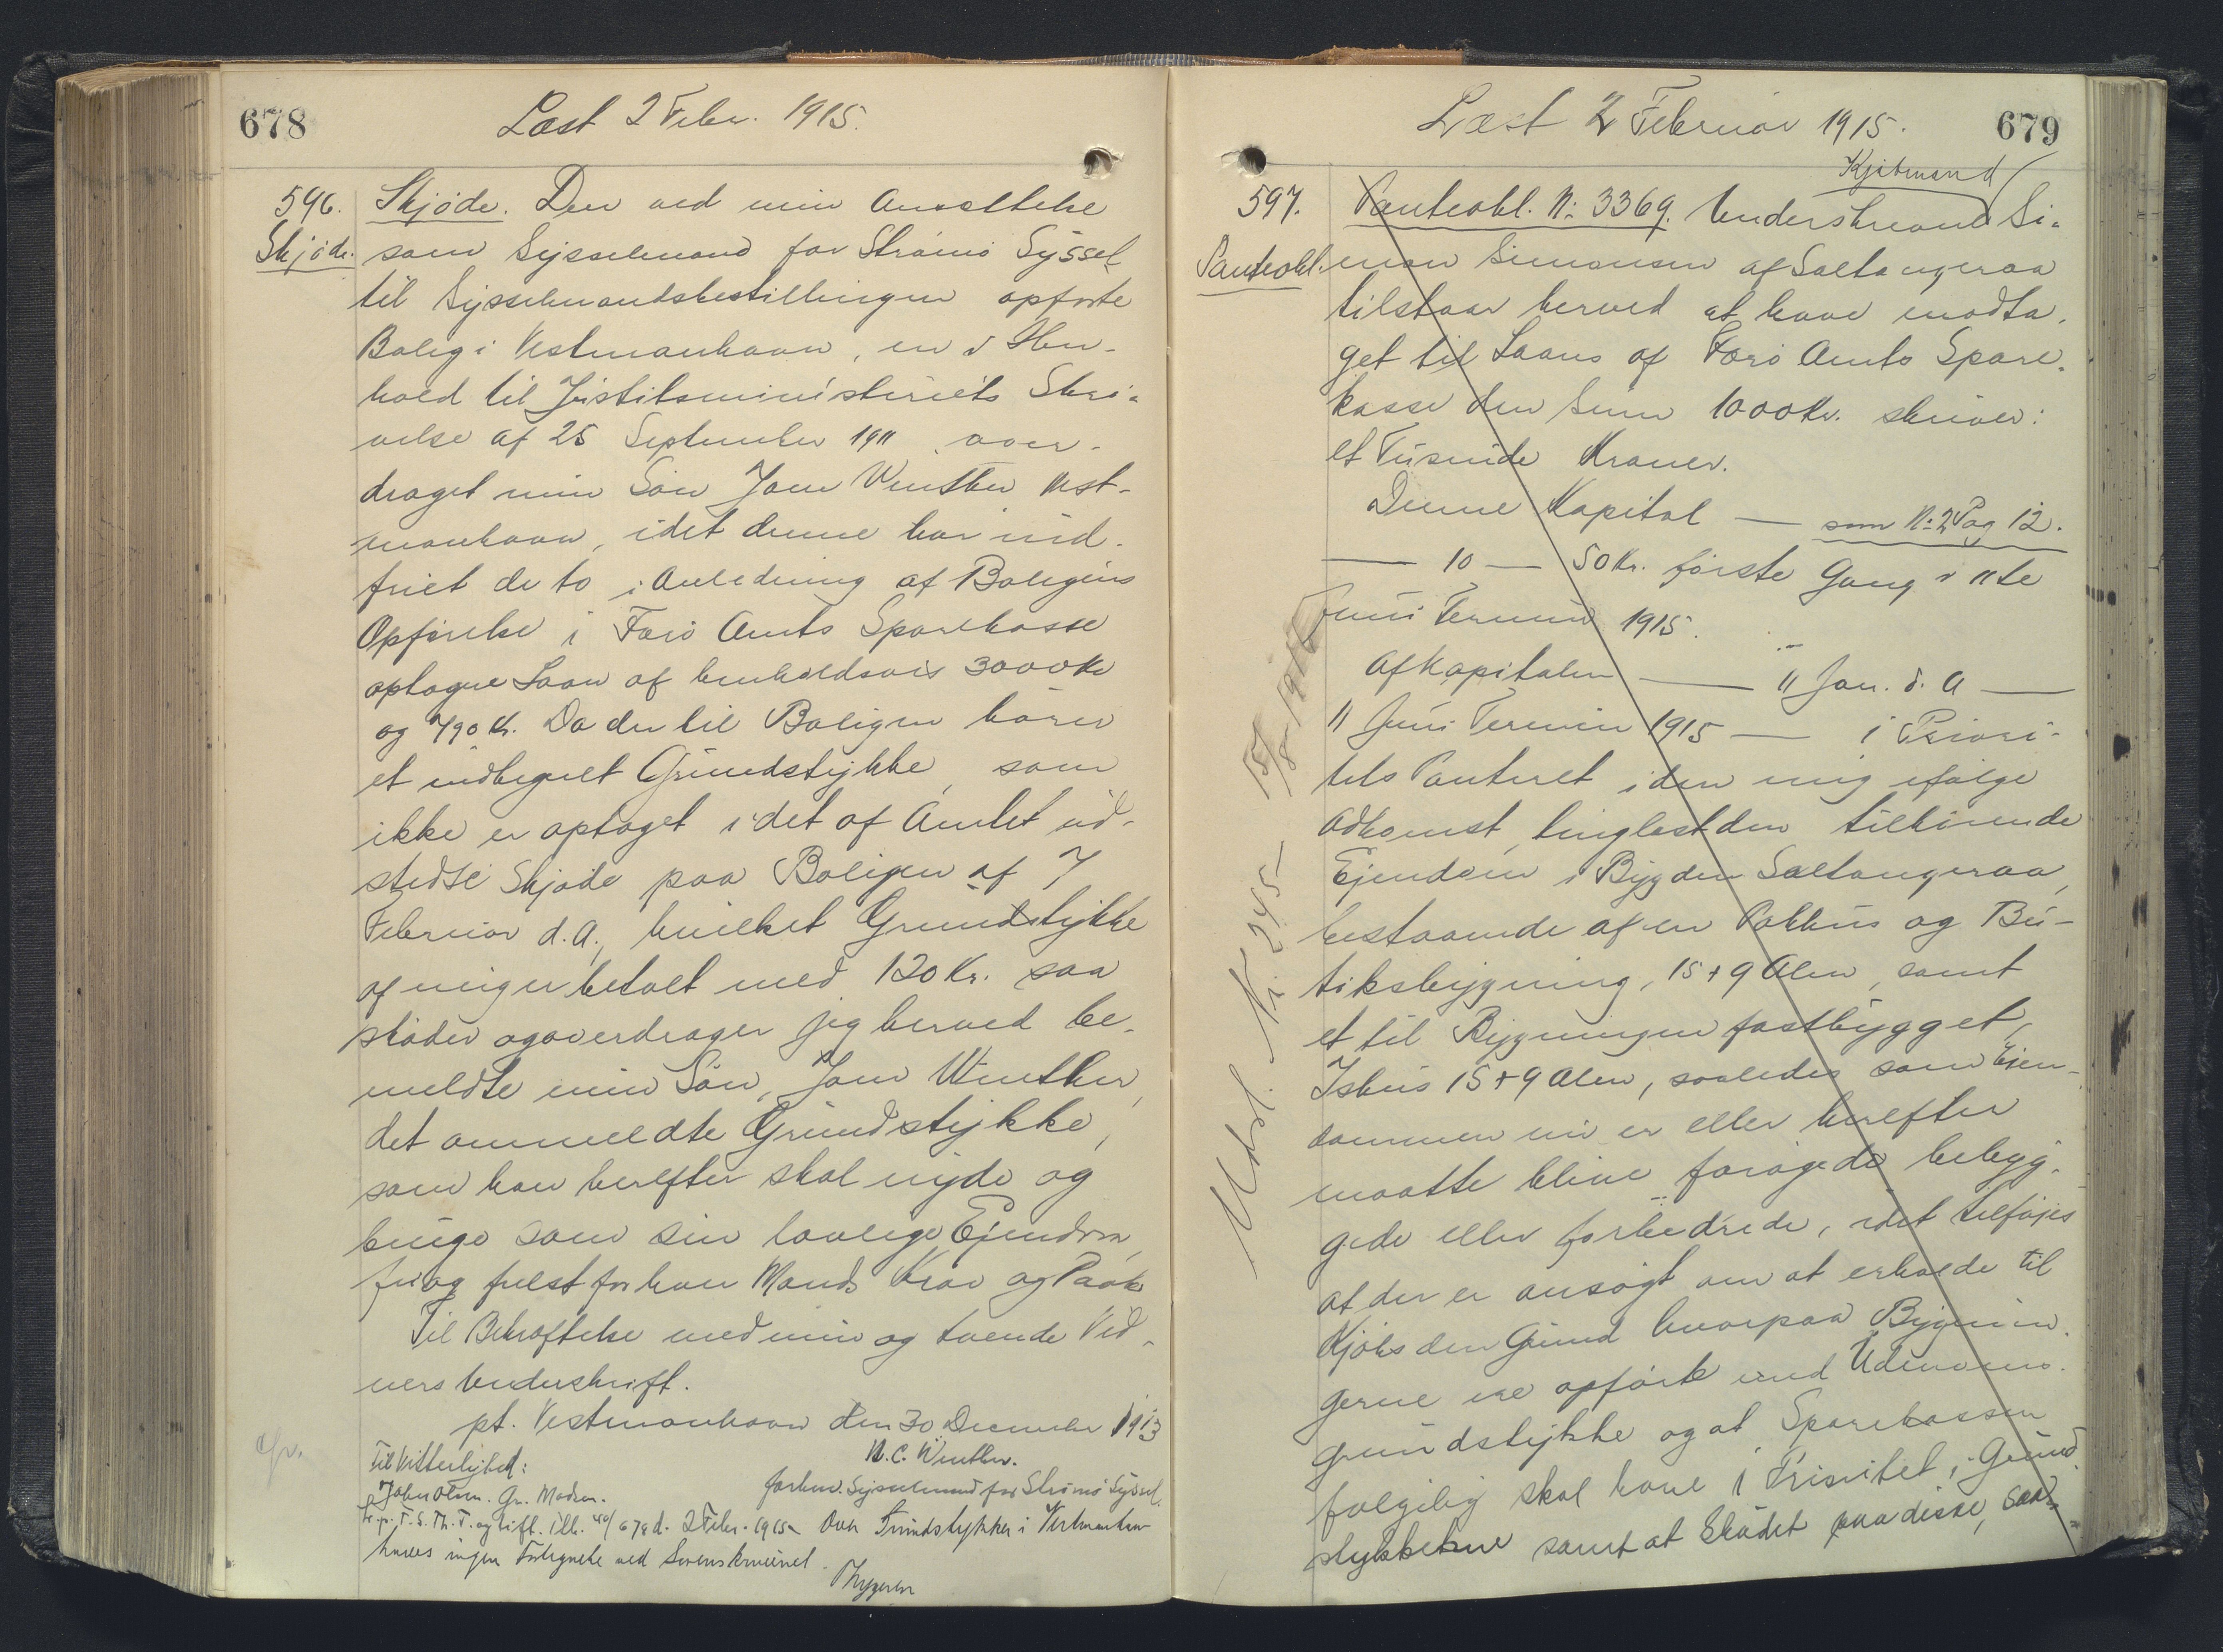 678
Læst 2 Febr. 1915.
596.
Skjøde.
Skjöde. Den ved min Ansættelse
som Sysselmand for Strömö Syssel
til Sysselmandsbestillingen opförte
Bolig i Vestmanhavn, er i Hen-
hold til Justitsministeriets Skri-
velse af 25 September 1911 over-
draget min Sön Joen Winther Vest-
manhavn, idet denne har ind-
friet de to i Anledning af Boligens
Opförelse i Færö Amts Sparekasse
optagne Laan af henholdsvis 3000 Kr
og 790 Kr. Da der til Boligen hörer
et indhegnet Grundstykke, som
ikke er optaget i det af Amtet ud-
stedte Skjöde paa Boligen af 7
Februar d.A., hvilket Grundstykke
af mig er betalt med 120 Kr. saa
skøder og overdrager jeg herved be-
meldte min Sön, Joen Winther,
det ommeldte Grundstykke,
som han herefter skal nyde og
bruge som sin lovlige Ejendom
fri og frelst for hver Mands Krav og Paak
Til Bekræftelse med min og tvende Vid-
ners Underskrift.
pt. Vestmanhavn den 30 December 1913
N.C. Winther.
forhenv. Sysselmand for Strömö Syssel.
Til Vitterlighed:
Johs Olsen. Gr. Madsen.
d. 2 Febr. 1915 Over Grundstykker i Vestmanhavn
haves ingen Fortegnelse ved Sorenskriveriet.
Thygesen
679
Læst 2 Februar 1915.
Kjøbmand
597.
Panteobl.
Panteobl. N: 3369. Underskrevne Si-
mon Simonsen af Saltangeraa
tilstaar herved at have modta-
get til Laans af Færö Amts Spare-
kasse den Sum 1000 Kr. skriver:
et Tusinde Kroner.
Denne Kapital — som N: 2 Pag 12.
— 10 — 50 Kr. förste Gang i 11te
Juni Termin 1915.
Af Kapitalen — 11 Jan. d. A —
11 Juni Termin 1915 — 1 Priori-
tets Panteret i den mig ifölge
Adkomst, tinglæst den tilhörende
Ejendom i Bygden Saltangeraa,
bestaaende af en Pakhus og Bu-
tiksbygning, 15 + 9 Alen, samt
et til Bygningen fastbygget
Ishus 15 + 9 Alen, saaledes som Ejen-
dommen nu er eller herefter
maatte blive forøgede bebyg-
gede eller forbedrede, idet tilföjes
at der er ansögt om at erholde til
Kjöbs den Grund hvorpaa Bygnin-
gerne ere opförte med Udenoms-
grundstykke og at Sparekassen
folgelig skal have 1 Prioritet i Grund-
stykkerne samt at Skødet paa disse, saa-
Udsl. N: 245 15/8 1916